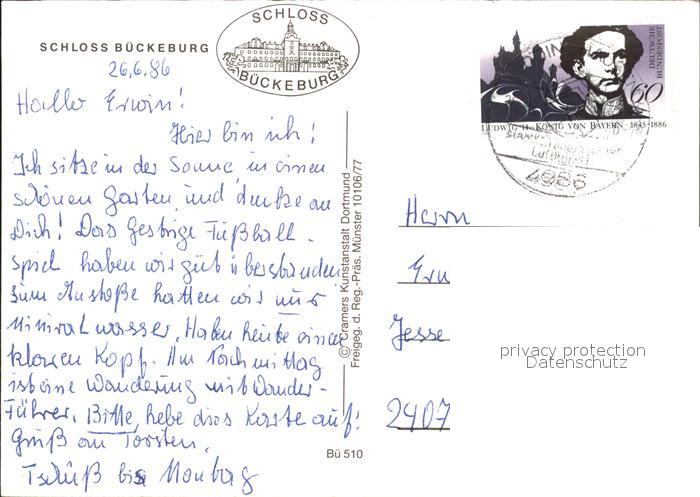 SCHLOSS BÜCKEBURG
SCHLOSS
BÜCKEBURG
26.6.86
Hallo Erwin!
Hier bin ich!
Ich sitze in der Sonne in einen
schönen Garten und denke an
Dich! Das gestrige Fußball-
spiel haben wir gut überstanden
zum Anstoße hatten wir nur
Mineralwasser. Haben heute einen
klaren Kopf. Am Nachmittag
ist eine Wanderung mit Wander-
Führer. Bitte, hebe dies Karte auf!
Gruß an Torsten.
Tschüß bis Montag
© Cramers Kunstanstalt Dortmund
Freigeg. d. Reg.-Präs. Münster 10106/77
Bü 510
DEUTSCHE
BUNDESPOST
60
LUDWIG II. KÖNIG VON BAYERN · 1845-1886
Luftkurort
4986
Herrn
Jesse
2407
privacy protection
Datenschutz